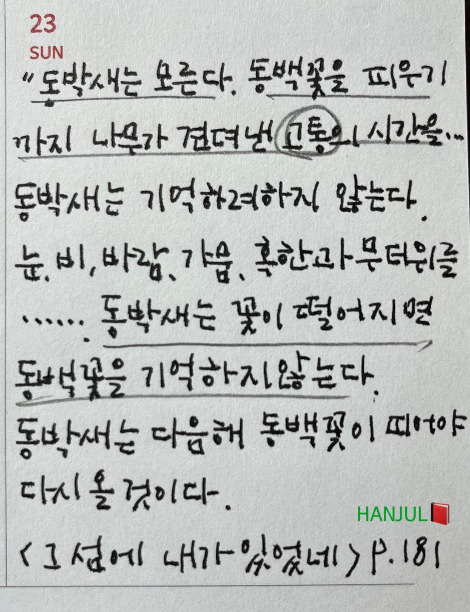 23
SUN
"동박새는 모른다. 동백꽃을 피우기
까지 나무가 견뎌낸 고통의 시간을...
동박새는 기억하려하지 않는다.
눈, 비, 바람, 가뭄, 혹한과 무더위를
...... 동박새는 꽃이 떨어지면
동백꽃을 기억하지않는다.
동박새는 다음해 동백꽃이 피어야
다시 올 것이다.
HANJUL📕
<그 섬에 내가 있었네> P.181